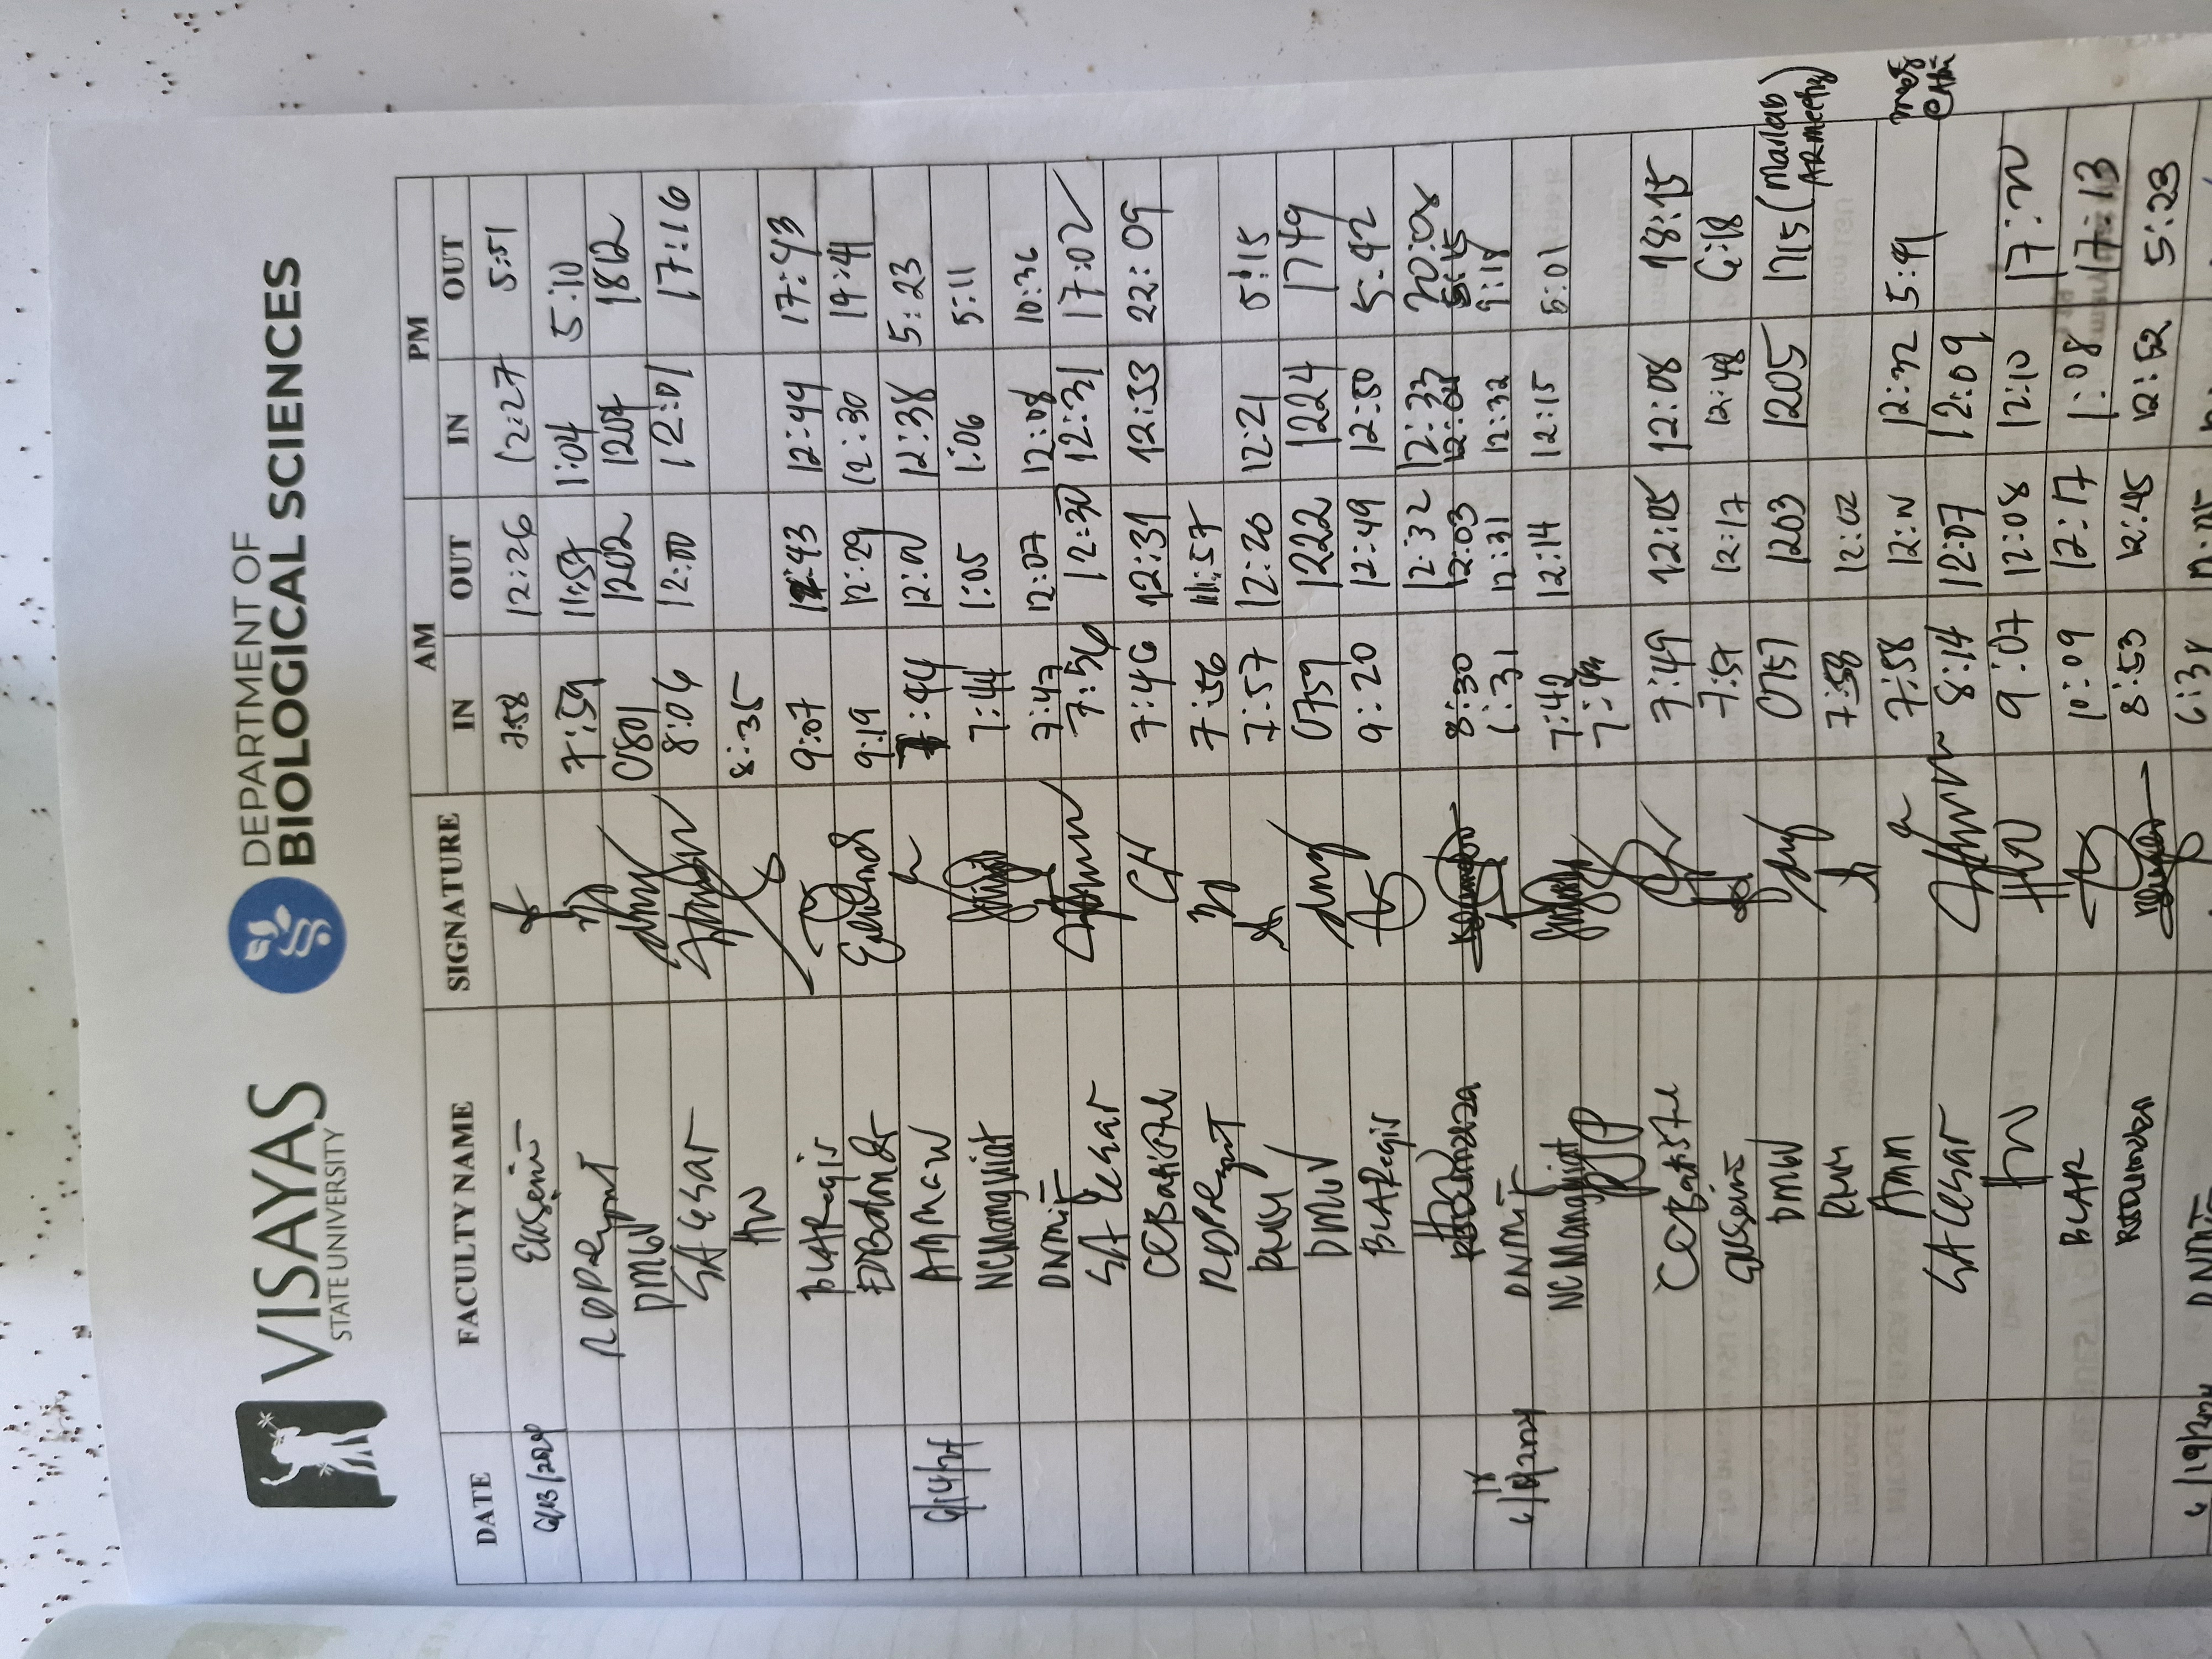 VISAYAS
STATE UNIVERSITY
DEPARTMENT OF
BIOLOGICAL SCIENCES
DATE FACULTY NAME SIGNATURE AM PM
IN OUT IN OUT
6/13/2024 7:58 12:26 12:27 5:51
7:59 11:59 1:04 5:10
DMW 0801 1202 1204 1812
SA Cesar 8:06 12:00 12:01 17:16
HW 8:35
BLARegis 9:07 12:43 12:44 17:43
9:19 12:29 12:30 14:41
6/14/24 AMMacaw 7:44 12:01 12:38 5:23
NCMangubat 7:44 1:05 1:06 5:11
7:47 12:07 12:08 10:36
SA Cesar 7:56 12:30 12:31 17:02
CCBatistel 7:46 12:31 12:33 22:09
7:56 11:57
7:57 12:20 12:21 5:15
DMW 0759 1222 1224 1749
BLARegis 9:20 12:49 12:50 5:42
12:32 12:33 20:08
8:30 12:03 12:04 5:45
6/18/2024 6:31 12:31 12:32 9:18
NCMangubat 7:42 12:14 12:15 5:01
CCBatistel 7:49 12:05 12:08 18:15
7:57 12:17 12:48 6:18
DMW 0757 1203 1205 1715 (Marlab AR meeting)
7:58 12:02
AMM 7:58 12:32 5:41
SA Cesar 8:14 12:07 12:09
HW 9:07 12:08 12:10
BLAR 10:09 12:17 1:08 17:13
8:53 12:45 12:52 5:23
6/19/2024